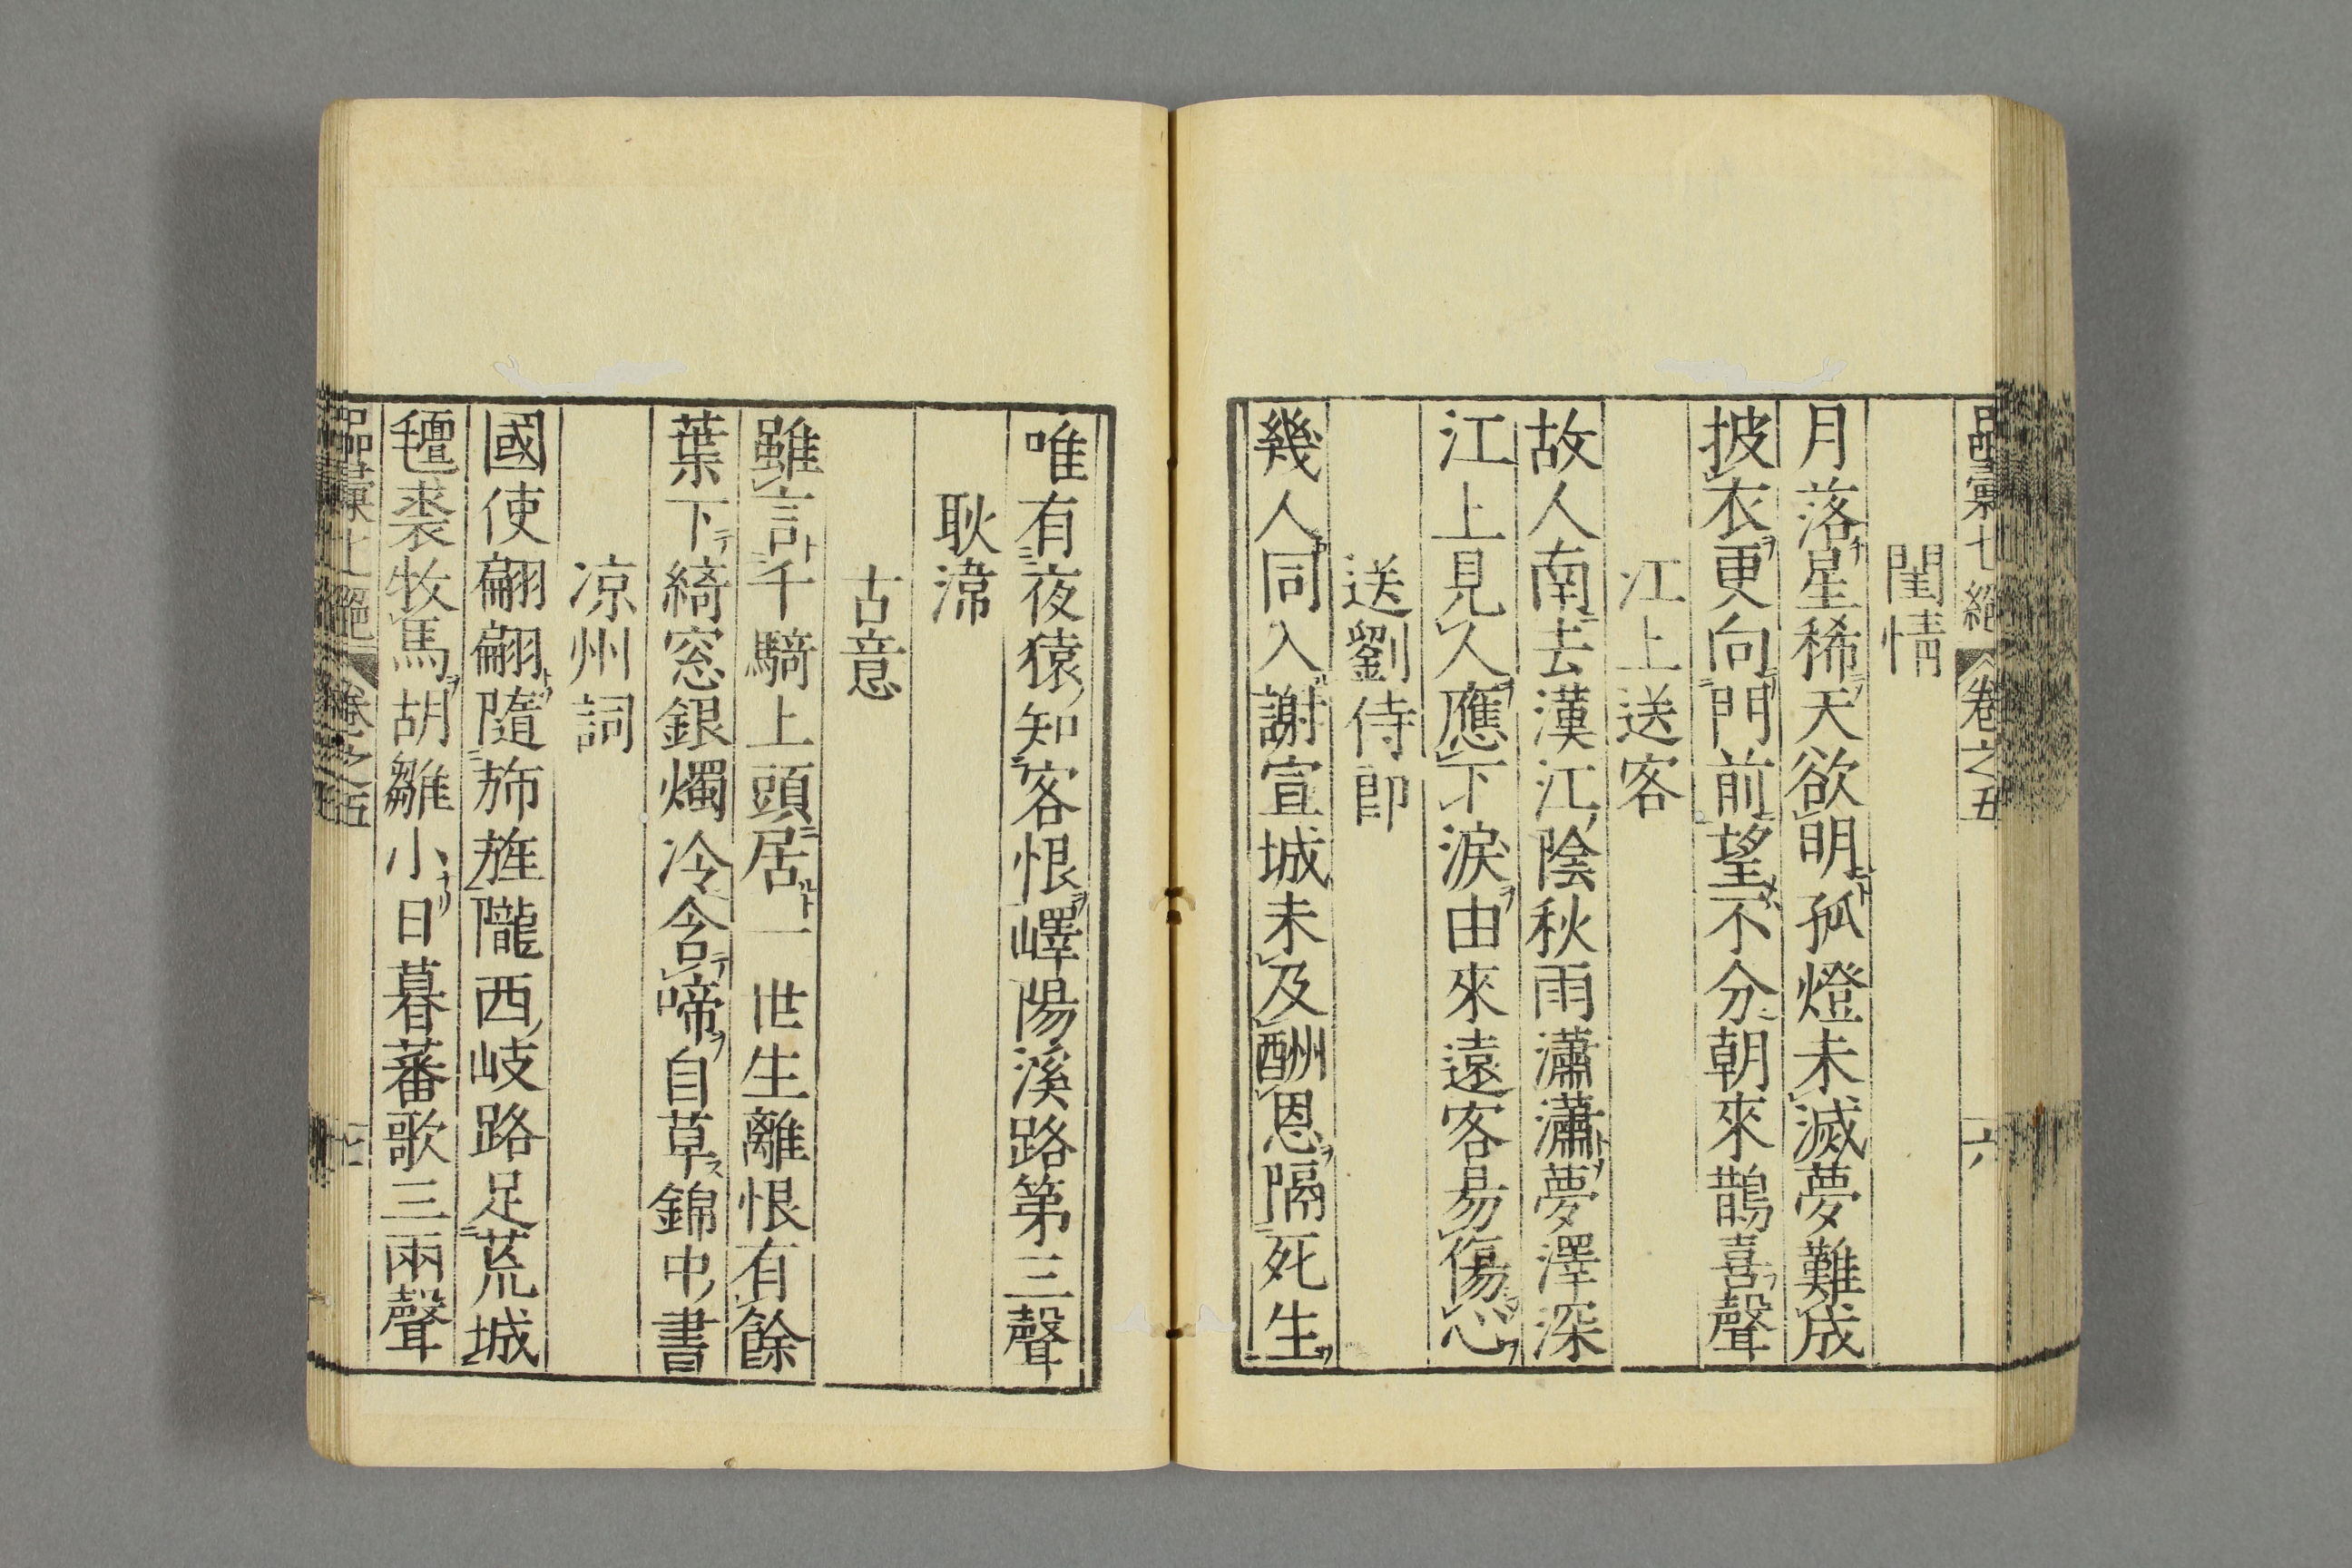 品彙七絕 卷之五 六
閨情
月落星稀天欲明孤燈未滅夢難成
披衣更向門前望不分朝來鵲喜聲
江上送客
故人南去漢江陰秋雨瀟瀟夢澤深
江上見人應下淚由來遠客易傷心
送劉侍郎
幾人同入謝宣城未及酬恩隔死生
唯有夜猿知客恨嶧陽溪路第三聲
耿湋
古意
雖言千騎上頭居一世生離恨有餘
葉下綺窓銀燭冷含啼自草錦中書
凉州詞
國使翩翩隨旆旌隴西岐路足荒城
氊裘牧馬胡雛小日暮蕃歌三兩聲
品彙七絕 卷之五 七